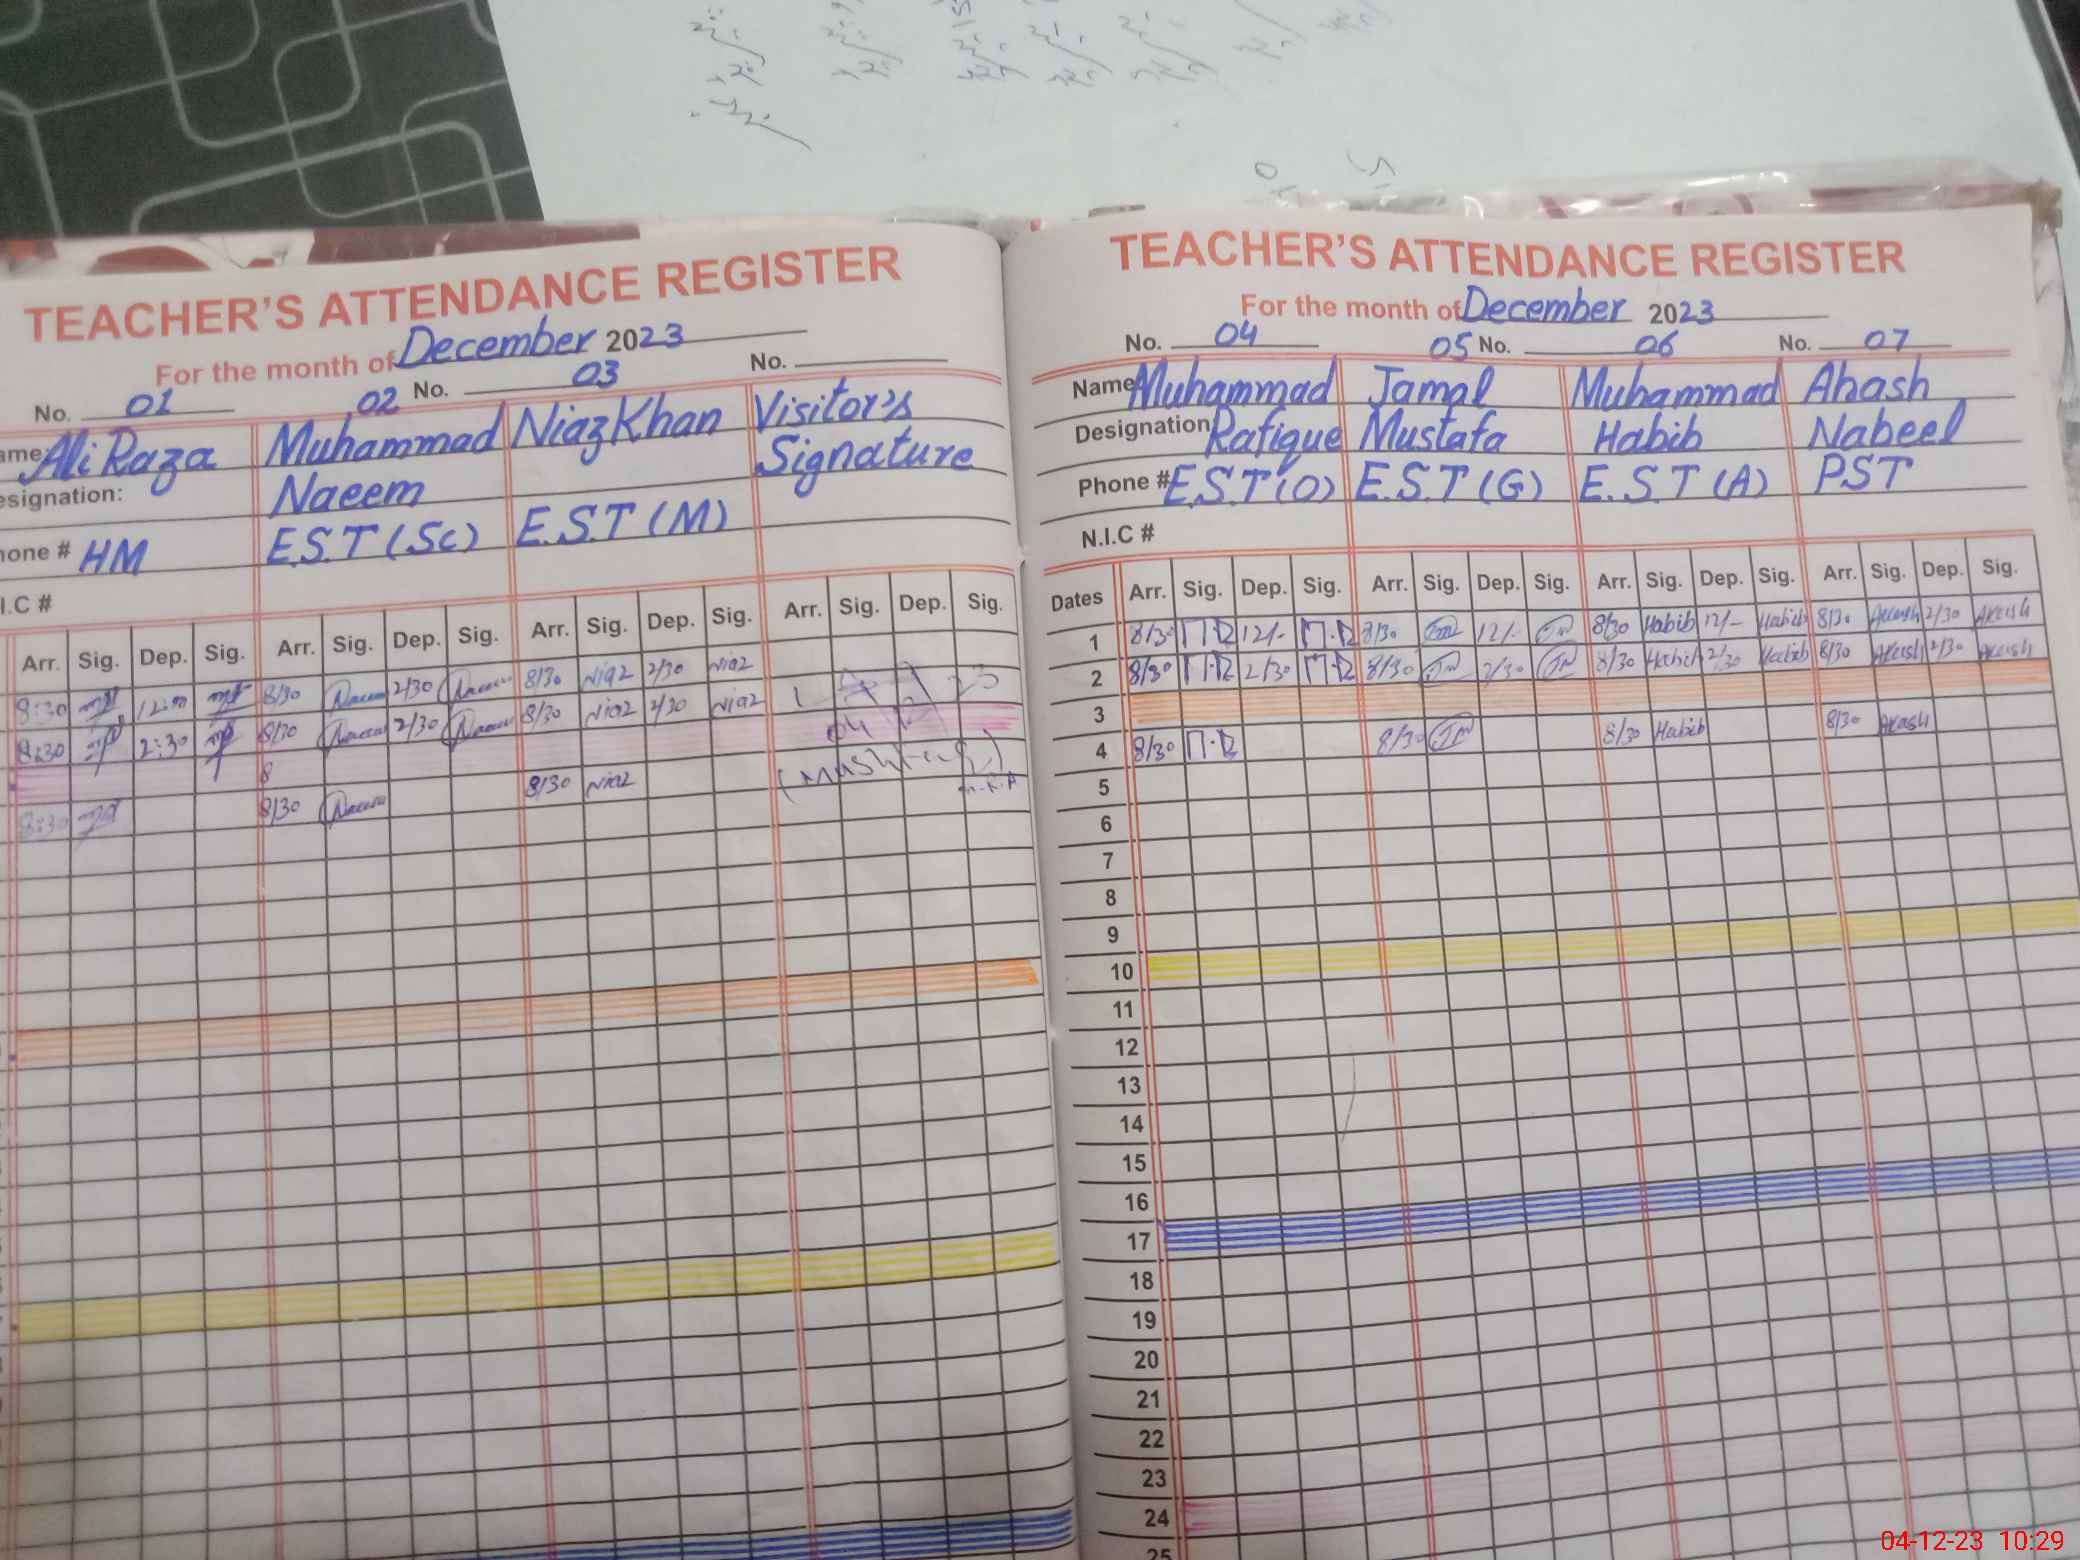 TEACHER'S ATTENDANCE REGISTER
For the month of December 2023
No. 01 02 No. 03 No.
ame Ali Raza Muhammad Niaz Khan Visitor's
esignation: Naeem Signature
hone # HM E.S.T (Sc) E.S.T (M)
I.C #
Arr. Sig. Dep. Sig. Arr. Sig. Dep. Sig. Arr. Sig. Dep. Sig. Arr. Sig. Dep. Sig.
8:30 12:00 8/30 Naeem 2/30 Naeem 8/30 Niaz 2/30 Niaz
8:30 2:30 8/30 Naeem 2/30 Naeem 8/30 Niaz 2/30 Niaz 04 12 23
8
8:30 8/30 Naeem 8/30 Niaz (Mushtaq)
TEACHER'S ATTENDANCE REGISTER
For the month of December 2023
No. 04 05 No. 06 No. 07
Name Muhammad Jamal Muhammad Ahash
Designation Rafique Mustafa Habib Nabeel
Phone # E.S.T (O) E.S.T (G) E.S.T (A) PST
N.I.C #
Dates Arr. Sig. Dep. Sig. Arr. Sig. Dep. Sig. Arr. Sig. Dep. Sig. Arr. Sig. Dep. Sig.
1 8/30 M.R 12/- M.R 8/30 JM 12/- JM 8/30 Habib 12/- Habib 8/30 Akash 2/30 Akash
2 8/30 M.R 2/30 M.R 8/30 JM 2/30 JM 8/30 Habib 2/30 Habib 8/30 Akash 2/30 Akash
3
4 8/30 M.R 8/30 JM 8/30 Habib 8/30 Akash
5
6
7
8
9
10
11
12
13
14
15
16
17
18
19
20
21
22
23
24
25
04-12-23 10:29